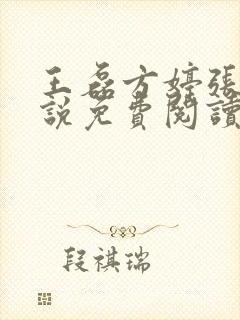 王磊方婷張
說免費閱讀
段祺瑞